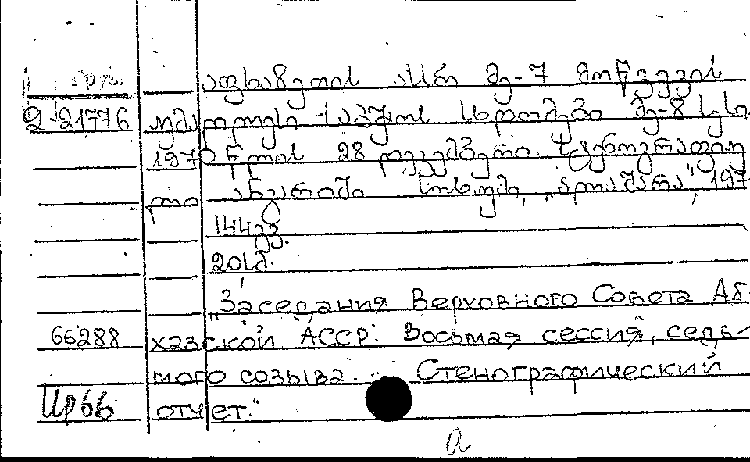 აფხაზეთის ასსრ მე-7 მოწვევის
2-21776 უმაღლესი საბჭოს სხდომები მე-8 სესია
1970 წლის 28 დეკემბერი. სტენოგრაფიუ
ლი ანგარიში სოხუმი, „ალაშარა", 197
144 გვ.
201 ც.
„Заседания Верховного Совета Аб-
66288 хазской АССР. Восьмая сессия, седь-
мого созыва. Стенографический
отчет."